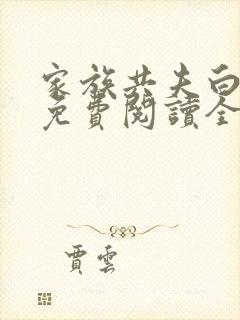 家族共夫白
免費閱讀全
賈雲